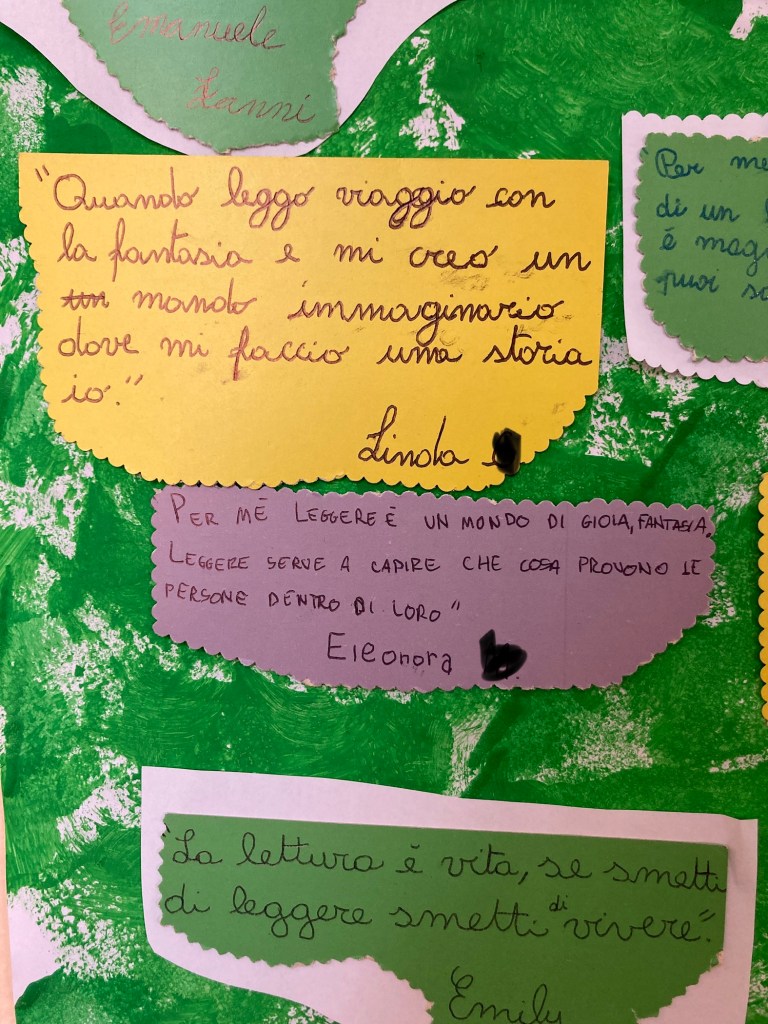 Emanuele
Zanni
"Quando leggo viaggio con
la fantasia e mi creo un
un mondo immaginario
dove mi faccio una storia
io."
Linda
Per me
di un
è
puoi
PER ME LEGGERE È UN MONDO DI GIOIA, FANTASIA.
LEGGERE SERVE A CAPIRE CHE COSA PROVONO LE
PERSONE DENTRO DI LORO"
Eleonora
"La lettura è vita, se smetti
di leggere smetti di vivere".
Emily